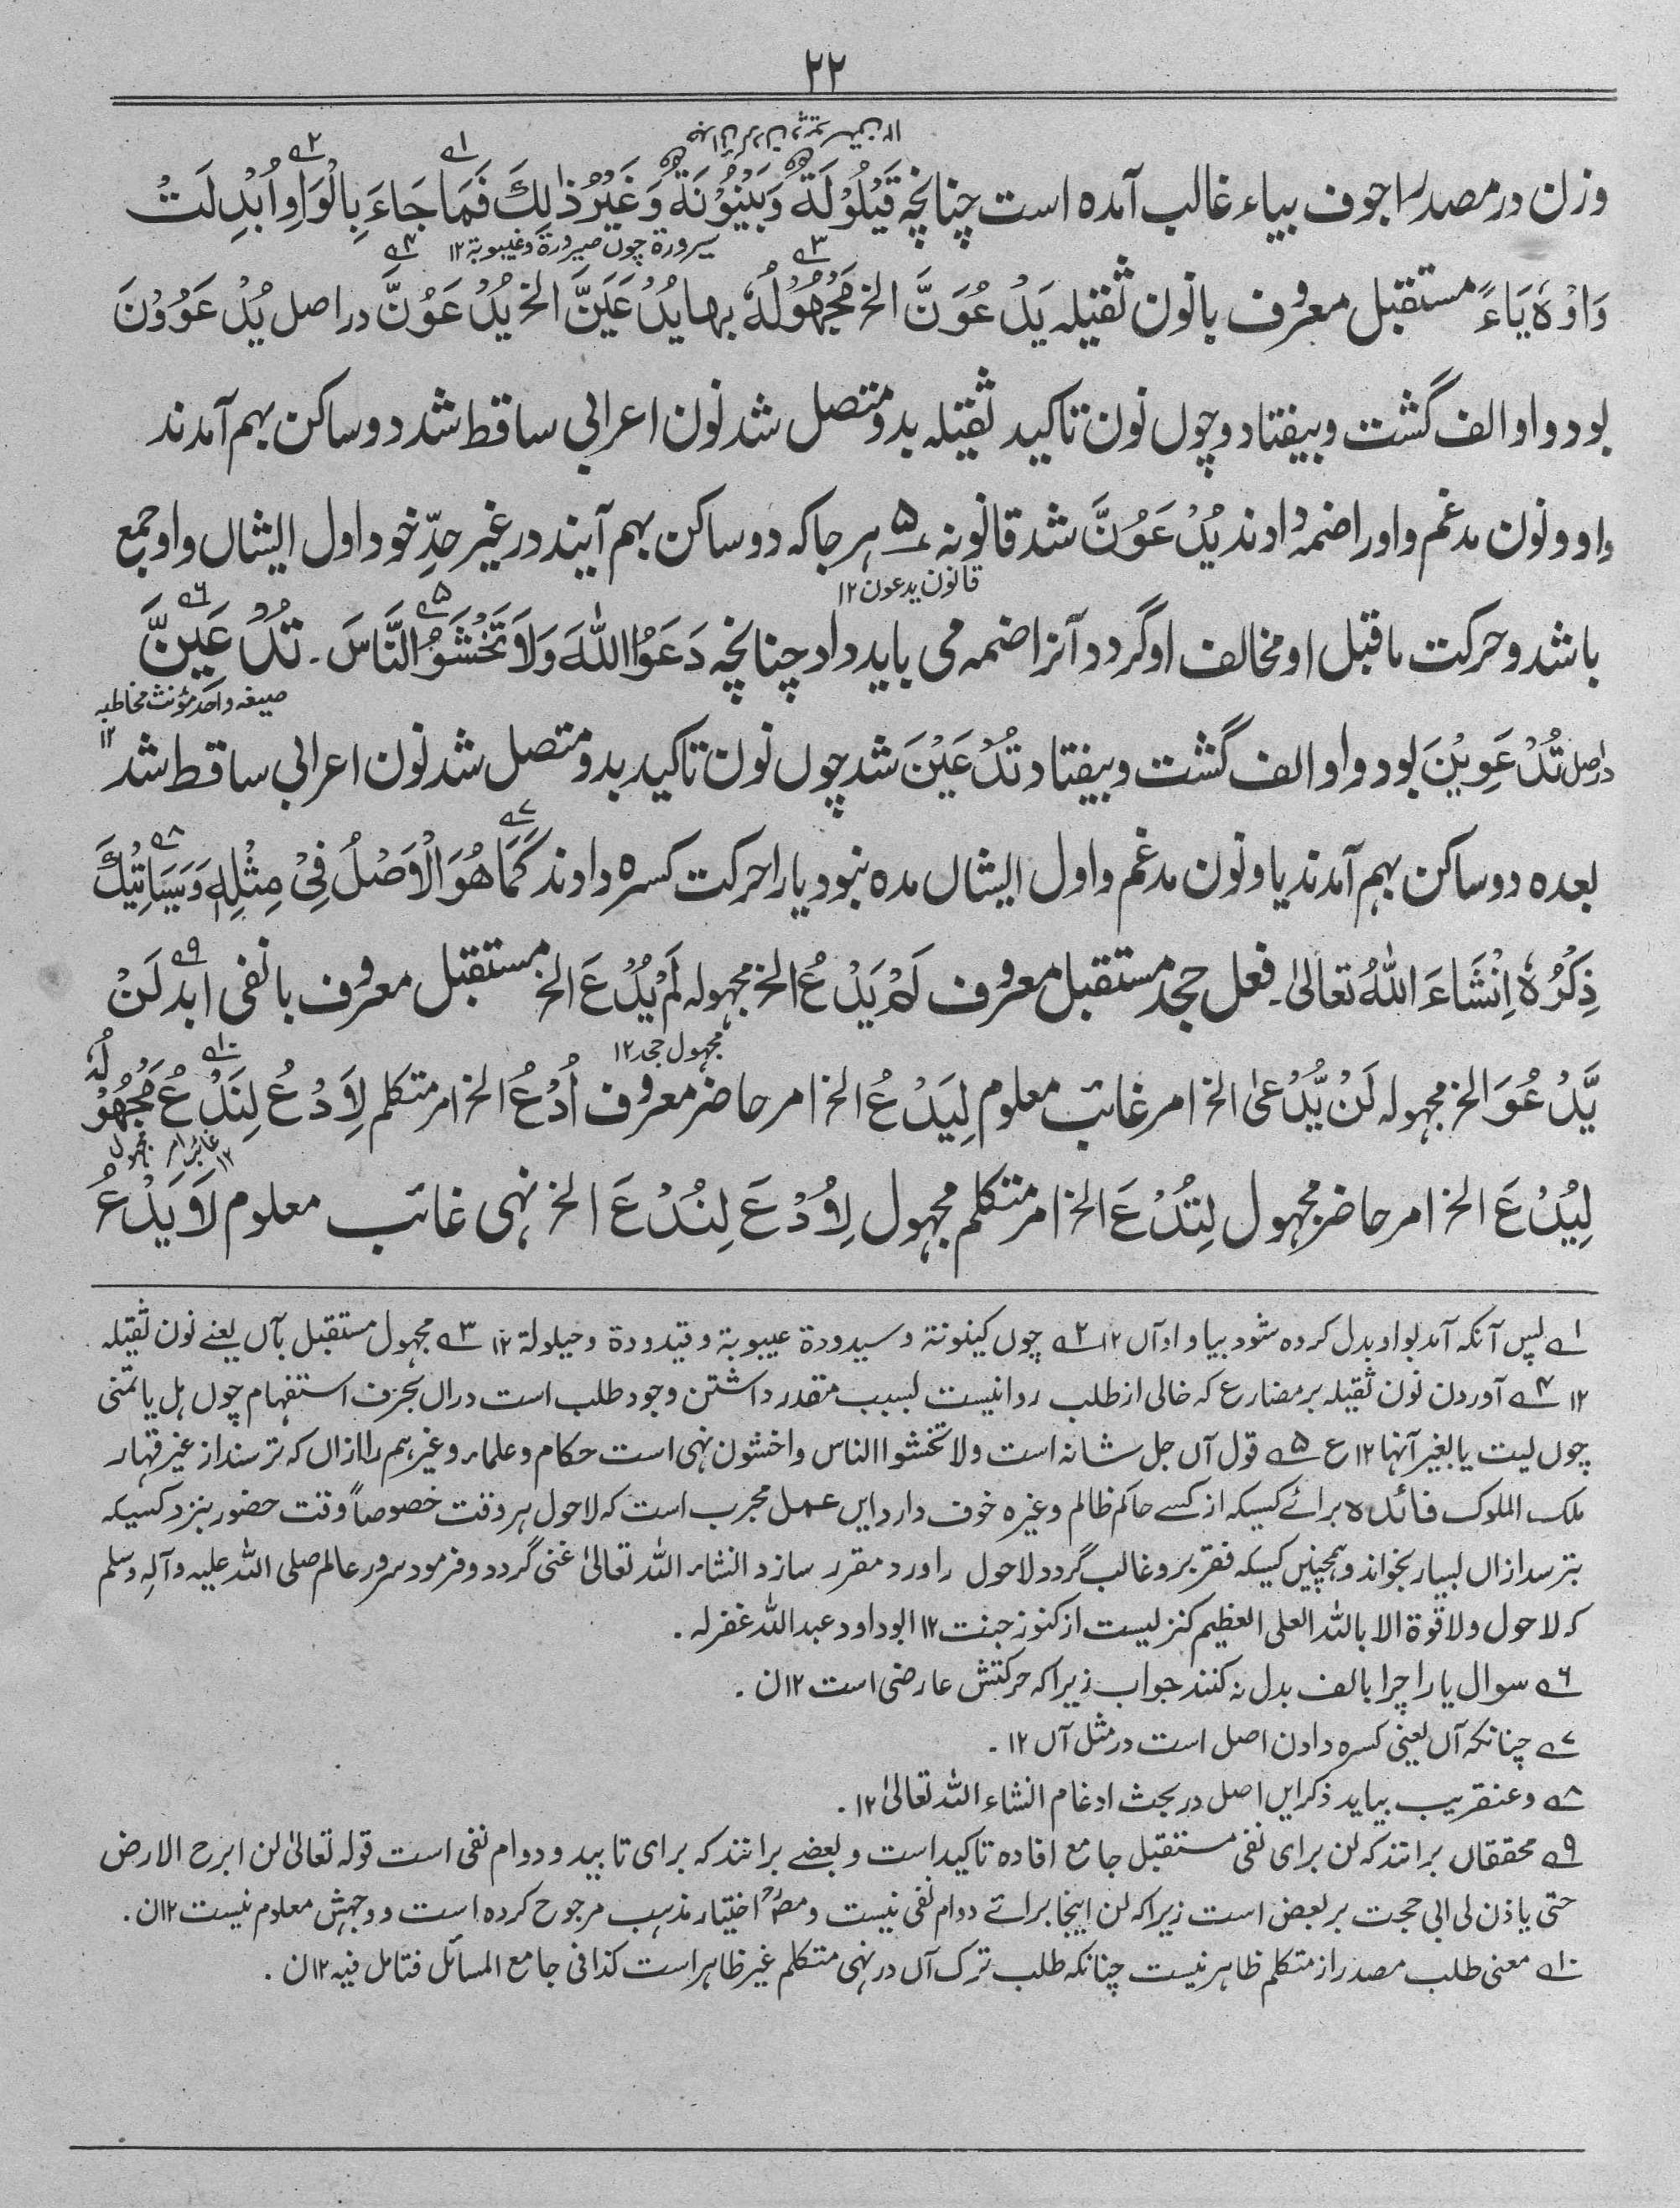 ۲۲
وزن در مصدر اجوف بیاء غالب آمده است چنانچہ قَیْلُوْلَةٌ وَبَیْنُوْنَةٌ وَغَیْرُ ذٰلِكَ فَمَا جَاءَ بِالْوَاوِ اُبْدِلَتْ
سیرورة چوں صیرورة وغیبوبة ۱۲
وَاوُهٗ یَاءً مستقبل معروف بانون ثقیلہ یَدْعُوَنَّ الخ مَجْهُوْلُهٗ بها یُدْعَیَنَّ الخ یُدْعَوُنَّ در اصل یُدْعَوُوْنَ
بود واو الف گشت و بیفتاد و چوں نون تاکید ثقیلہ بدو متصل شد نون اعرابی ساقط شد دو ساکن بہم آمدند
واو و نون مدغم و او را ضمہ دادند یُدْعَوُنَّ شد قانونہ ۵ ہر جا کہ دو ساکن بہم آیند در غیر حدِّ خود اول ایشاں واو جمع
قانون یدعون ۱۲
باشد و حرکت ماقبل او مخالف او گردد آنرا ضمہ می باید داد چنانچہ دَعَوُا اللّٰهَ وَلَا تَخْشَوُا النَّاسَ ۔ تُدْعَیِنَّ
صیغہ واحد مؤنث مخاطبہ ۱۲
در اصل تُدْعَوِیْنَ بود واو الف گشت و بیفتاد تُدْعَیْنَ شد چوں نون تاکید بدو متصل شد نون اعرابی ساقط شد
بعدہ دو ساکن بہم آمدند یا و نون مدغم و اول ایشاں مدہ نبود یا را حرکت کسرہ دادند کَمَا هُوَ الْاَصْلُ فِیْ مِثْلِهٖ وَسَیَاتِیْكَ
ذِکْرُهٗ اِنْشَاءَ اللّٰهُ تعالیٰ۔ فعل جحد مستقبل معروف لَمْ یَدْعُ الخ مجہولہ لَمْ یُدْعَ الخ مستقبل معروف بانفی ابد لَنْ
مجہول جحد ۱۲
یَّدْعُوَ الخ مجہولہ لَنْ یُّدْعٰی الخ امر غائب معلوم لِیَدْعُ الخ امر حاضر معروف اُدْعُ الخ امر متکلم لِاَدْعُ لِنَدْعُ مَجْهُوْلُهٗ
لِیُدْعَ الخ امر حاضر مجہول لِتُدْعَ الخ امر متکلم مجہول لِاُدْعَ لِنُدْعَ الخ نہی غائب معلوم لَا یَدْعُ
۱ے پس آنکہ آمد بواو بدل کردہ شود بیا واو آں ۱۲ ۲ے چوں کینونة و سیدودة عیبوبة و قیدودة وحیلولة ۱۲ ۳ے مجہول مستقبل بآں یعنے نون ثقیلہ
۱۲ ۴ے آوردن نون ثقیلہ بر مضارع کہ خالی از طلب روا نیست بسبب متقدر داشتن وجود طلب است دراں بحرف استفہام چوں ہل یا تمنی
چوں لیت یا بغیر آنہا ۱۲ ع ۵ے قول آں جل شانہ است ولا تخشوا الناس واخشون نہی است حکام و علماء وغیرہم را ازاں کہ ترسند از غیر قہار
ملک الملوک فائدہ برائے کسیکہ از کسے حاکم ظالم وغیرہ خوف دارد ایں عمل مجرب است کہ لاحول ہر وقت خصوصاً وقت حضور بنزد کسیکہ
بترسد ازاں بسیار بخواند وہمچنیں کسیکہ فقر برو غالب گردد لاحول را ورد مقرر سازد انشاء اللہ تعالیٰ غنی گردد و فرمود سرور عالم صلی اللہ علیہ وآلہ وسلم
کہ لاحول ولا قوة الا باللہ العلی العظیم کنزیست از کنوز جنت ۱۲ ابو داود عبد اللہ غفرلہ ۔
۶ے سوال یا را چرا بالف بدل نہ کنند جواب زیرا کہ حرکتش عارضی است ۱۲ ن ۔
۷ے چنانکہ آں یعنی کسرہ دادن اصل است در مثل آں ۱۲ ۔
۸ے وعنقریب بیاید ذکر ایں اصل در بحث ادغام انشاء اللہ تعالیٰ ۱۲ ۔
۹ے محققاں برانند کہ لن برای نفی مستقبل جامع افادہ تاکید است و بعضے برانند کہ برای تابید و دوام نفی است قولہ تعالیٰ لن ابرح الارض
حتی یاذن لی ابی حجت بر بعض است زیرا کہ لن اینجا برائے دوام نفی نیست ومصؒ اختیار مذہب مرجوح کردہ است و وجہش معلوم نیست ۱۲ ن ۔
۱۰ے معنی طلب مصدر از متکلم ظاہر نیست چنانکہ طلب ترک آں در نہی متکلم غیر ظاہر است کذا فی جامع المسائل فتامل فیہ ۱۲ ن ۔